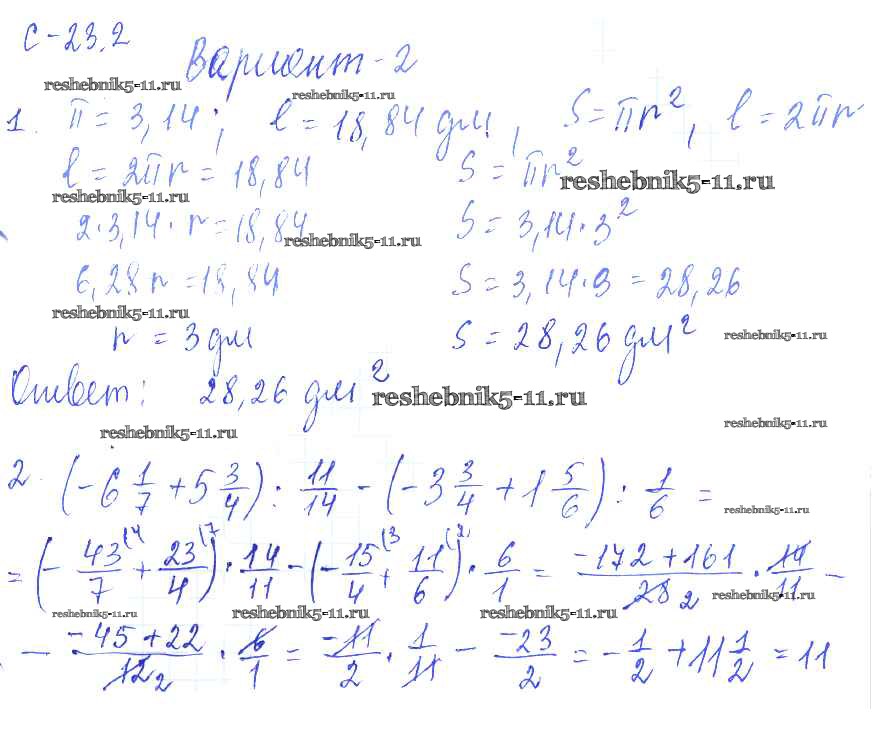 С-23.2
Вариант-2
reshebnik5-11.ru
reshebnik5-11.ru
1. π = 3,14; l = 18,84 дм, S = πr², l = 2πr
l = 2πr = 18,84 S = πr²
reshebnik5-11.ru
reshebnik5-11.ru
2·3,14·r = 18,84 S = 3,14·3²
reshebnik5-11.ru
6,28r = 18,84 S = 3,14·9 = 28,26
reshebnik5-11.ru
r = 3 дм S = 28,26 дм²
reshebnik5-11.ru
Ответ: 28,26 дм²
reshebnik5-11.ru
reshebnik5-11.ru
reshebnik5-11.ru
2. (-6 1/7 + 5 3/4) : 11/14 - (-3 3/4 + 1 5/6) : 1/6 =
reshebnik5-11.ru
= (-43/7 (4 + 23/4 (7) · 14/11 - (-15/4 (3 + 11/6 (2) · 6/1 = -172 + 161/28 2 · 14/11 -
reshebnik5-11.ru
reshebnik5-11.ru
reshebnik5-11.ru
reshebnik5-11.ru
- -45 + 22/12 2 · 6/1 = -11/2 · 1/11 - -23/2 = -1/2 + 11 1/2 = 11